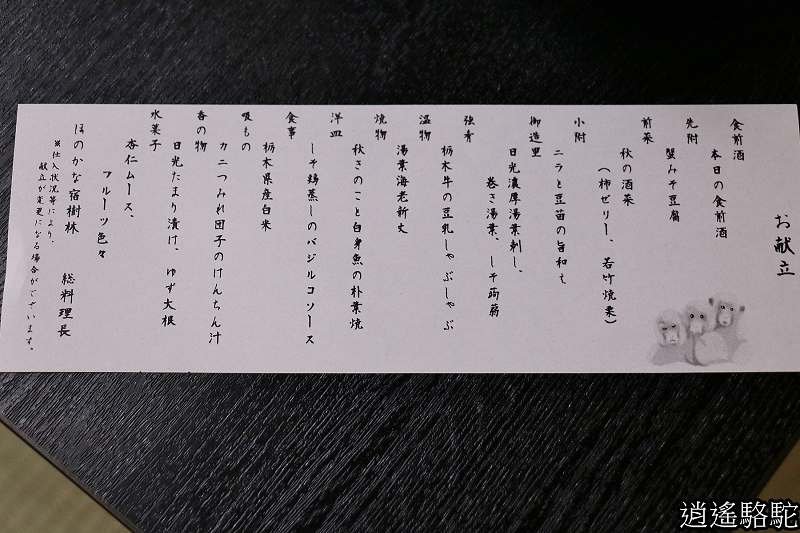 お献立
食前酒
本日の食前酒
先附
蟹みそ豆腐
前菜
秋の酒菜
（柿ゼリー、若竹焼栗）
小附
ニラと豆苗の旨和え
御造里
日光濃厚湯葉刺し、
巻き湯葉、しそ蒟蒻
強肴
栃木牛の豆乳しゃぶしゃぶ
温物
湯葉海老新丈
焼物
秋きのこと白身魚の朴葉焼
洋皿
しそ鶏蒸しのバジルコソース
食事
栃木県産白米
吸もの
カニつみれ団子のけんちん汁
香の物
日光たまり漬け、ゆず大根
水菓子
杏仁ムース、
フルーツ色々
ほのかな宿樹林　総料理長
※仕入状況等により、
献立が変更になる場合がございます。
逍遙駱駝